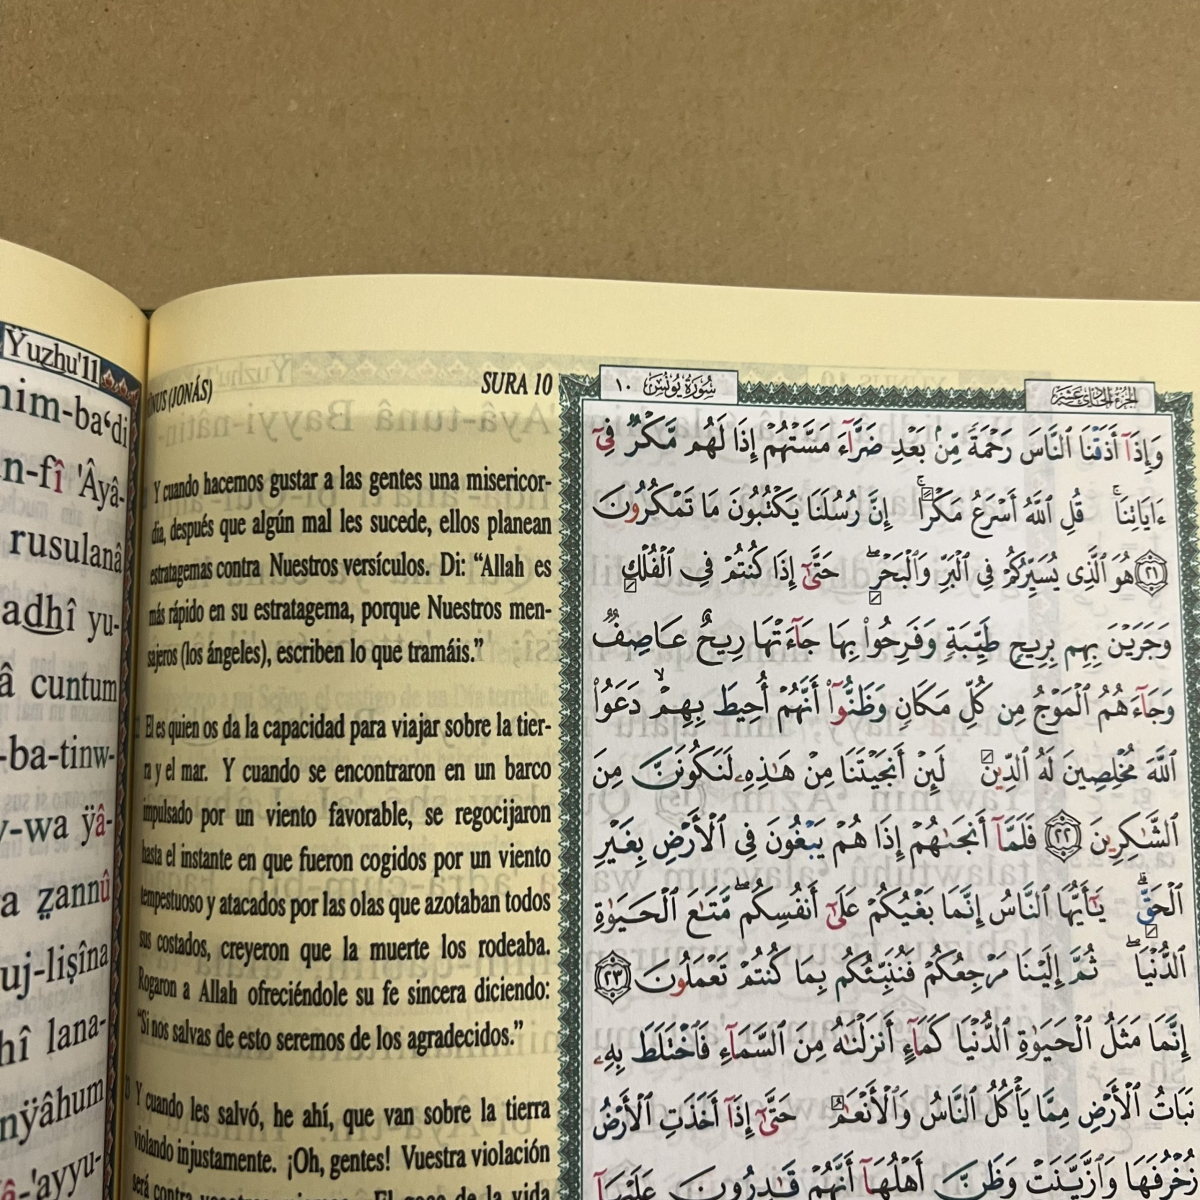 Ÿuzhu'11
him-ba‘di
n-fî 'Âyâ-
rusulanâ
adhî yu-
â cuntum
-ba-tinw-
y-wa ÿâ-
a ẓannû
uj-liṣîna
hî lana-
nÿâhum
â-'ayyu-
NUS (JONÁS) SURA 10
Y cuando hacemos gustar a las gentes una misericor-
dia, después que algún mal les sucede, ellos planean
estratagemas contra Nuestros versículos. Di: “Allah es
más rápido en su estratagema, porque Nuestros men-
sajeros (los ángeles), escriben lo que tramáis.”
El es quien os da la capacidad para viajar sobre la tier-
ra y el mar. Y cuando se encontraron en un barco
impulsado por un viento favorable, se regocijaron
hasta el instante en que fueron cogidos por un viento
tempestuoso y atacados por las olas que azotaban todos
sus costados, creyeron que la muerte los rodeaba.
Rogaron a Allah ofreciéndole su fe sincera diciendo:
“Si nos salvas de esto seremos de los agradecidos.”
Y cuando les salvó, he ahí, que van sobre la tierra
violando injustamente. ¡Oh, gentes! Vuestra violación
será contra El goce de la vida
الجزء الحادي عشر سورة يونس ١٠
وَإِذَآ أَذَقْنَا ٱلنَّاسَ رَحْمَةً مِّنۢ بَعْدِ ضَرَّآءَ مَسَّتْهُمْ إِذَا لَهُم مَّكْرٌ فِىٓ
ءَايَاتِنَا ۚ قُلِ ٱللَّهُ أَسْرَعُ مَكْرًا ۚ إِنَّ رُسُلَنَا يَكْتُبُونَ مَا تَمْكُرُونَ
٢١ هُوَ ٱلَّذِى يُسَيِّرُكُمْ فِى ٱلْبَرِّ وَٱلْبَحْرِ ۖ حَتَّىٰٓ إِذَا كُنتُمْ فِى ٱلْفُلْكِ
وَجَرَيْنَ بِهِم بِرِيحٍ طَيِّبَةٍ وَفَرِحُوا۟ بِهَا جَآءَتْهَا رِيحٌ عَاصِفٌ
وَجَآءَهُمُ ٱلْمَوْجُ مِن كُلِّ مَكَانٍ وَظَنُّوٓا۟ أَنَّهُمْ أُحِيطَ بِهِمْ ۙ دَعَوُا۟
ٱللَّهَ مُخْلِصِينَ لَهُ ٱلدِّينَ لَئِنْ أَنجَيْتَنَا مِنْ هَٰذِهِۦ لَنَكُونَنَّ مِنَ
ٱلشَّٰكِرِينَ ٢٢ فَلَمَّآ أَنجَىٰهُمْ إِذَا هُمْ يَبْغُونَ فِى ٱلْأَرْضِ بِغَيْرِ
ٱلْحَقِّ ۗ يَٰٓأَيُّهَا ٱلنَّاسُ إِنَّمَا بَغْيُكُمْ عَلَىٰٓ أَنفُسِكُم ۖ مَّتَٰعَ ٱلْحَيَوٰةِ
ٱلدُّنْيَا ۖ ثُمَّ إِلَيْنَا مَرْجِعُكُمْ فَنُنَبِّئُكُم بِمَا كُنتُمْ تَعْمَلُونَ ٢٣
إِنَّمَا مَثَلُ ٱلْحَيَوٰةِ ٱلدُّنْيَا كَمَآءٍ أَنزَلْنَٰهُ مِنَ ٱلسَّمَآءِ فَٱخْتَلَطَ بِهِۦ
نَبَاتُ ٱلْأَرْضِ مِمَّا يَأْكُلُ ٱلنَّاسُ وَٱلْأَنْعَٰمُ حَتَّىٰٓ إِذَآ أَخَذَتِ ٱلْأَرْضُ
زُخْرُفَهَا وَٱزَّيَّنَتْ وَظَنَّ أَهْلُهَآ أَنَّهُمْ قَٰدِرُونَ عَلَيْهَآ